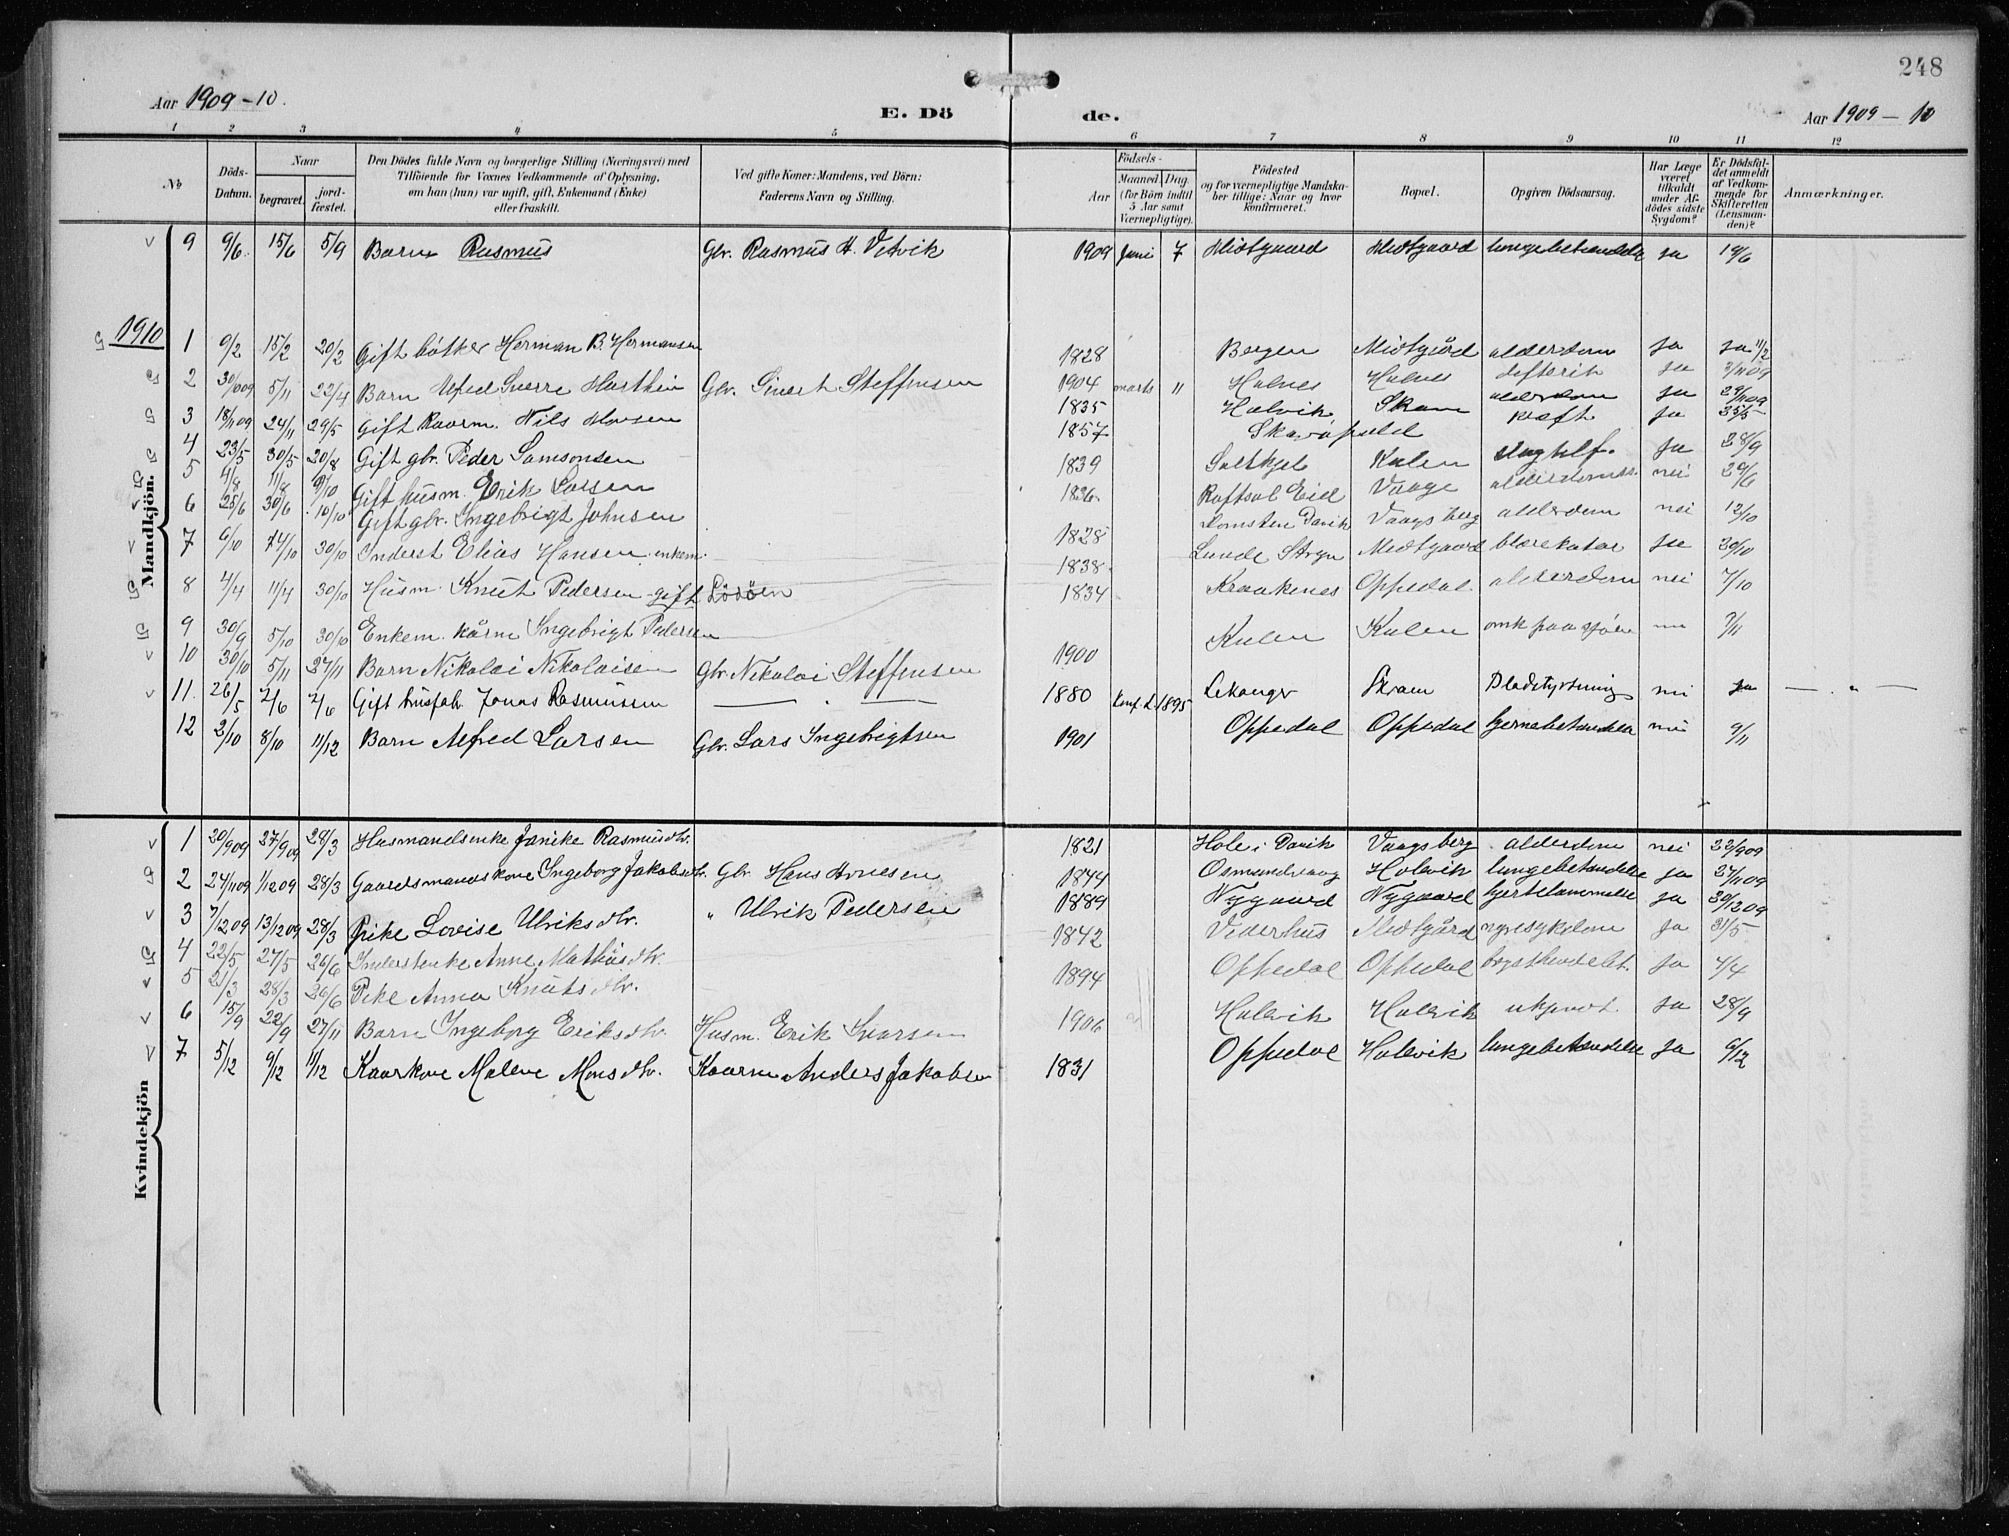 248
Aar 1909-10.
E. Dö
de.
Aar 1909-10
1 2 3 4 5 6 7 8 9 10 11 12
No
Döds-Datum.
Naar
begravet.
jord-fæstet.
Den Dödes fulde Navn og borgerlige Stilling (Næringsvei) med
Tilföiende for Voxnes Vedkommende af Oplysning,
om han (hun) var ugift, gift, Enkemand (Enke)
eller fraskilt.
Ved gifte Koner: Mandens, ved Börn:
Faderens Navn og Stilling.
Födsels-
Aar
Maaned Dag
(for Börn indtil
5 Aar samt
Værnepligtige).
Födested
og for værnepligtige Mandska-
ber tillige: Naar og hvor
konfirmeret.
Bopæl.
Opgiven Dödsaarsag.
Har Læge
været
tilkaldt
under Af-
dödes sidste
Sygdom?
Er Dödsfal-
det anmeldt
af Vedkom-
mende for
Skifteretten
(Lensman-
den)?
Anmærkninger.
9 9/6 15/6 5/9 Barn Rasmus Gbr. Rasmus H. Vetvik 1909 Juni 7 Midtgaard Midtgaard lungebetændelse ja 19/6
1910
1 9/2 15/2 20/2 Gift bötker Herman B. Hermansen 1828 Bergen Midtgård alderdom ja ja 11/2
2 30/10 09 5/11 22/4 Barn Alfred Sverre Gbr. Sivert Steffensen 1904 marts 11 Halnes Halnes defterit ja 3/11 09
3 18/11 09 24/11 29/5 Gift Kaarm. Nils Monsen 1835 Halvik Skram alderdom ja 29/11 09
4 23/5 30/5 20/8 Gift gbr. Peder Samsonsen 1857 kræft ja 25/5
5 4/8 11/8 9/10 Gift husm. Erik Larsen 1839 Kulen slagtilf. ja 28/9
6 25/6 30/6 10/10 Gift gbr. Ingebrigt Johnsen 1836 Eid Vaage nei 29/6
7 6/10 14/10 30/10 Inderst Elias Hansen enkem. 1828 Domsten Davik Vaagsberg alderdom nei 12/10
8 4/4 11/4 30/10 Husm. Knut Pedersen gift 1838 Lunde Stryn Midtgaard blærekatar ja 30/10
9 30/9 5/10 30/10 Enkem. kårm Ingebrigt Pedersen 1834 Kraakenes Oppedal alderdom nei 7/10
10 30/10 5/11 27/11 Barn Nikolai Nikolaisen Gbr. Nikolai Steffensen 1900 Kulen Kulen omk paa sjöen 7/11
11. 26/5 2/6 2/6 Gift husfar Jonas Rasmussen 1880 Konf. 1895 Lekanger Skram Blodstyrtning nei ja
12 2/10 8/10 11/12 Barn Alfred Larsen Gbr. Lars Ingebrigtsen 1901 Oppedal Oppedal hjernebetændelse nei 9/11
Mandkjön.
1 20/9 09 27/9 09 28/3 Husmandsenke Janike Rasmusdtr. 1821 Hole i Davik Vaagsberg alderdom nei 22/9 09
2 24/11 09 1/12 09 28/3 Gaardsmandskone Ingeborg Jakobsdtr. Gbr. Hans Arnesen 1844 Osmundsvaag Halvik lungebetændelse ja 27/11 09
3 7/12 09 13/12 09 28/3 Pike Lovise Ulriksdtr. " Ulrik Pedersen 1889 Nygaard Nygaard hjertelammelse ja 30/12 09
4 22/5 27/5 26/6 Inderstenke Anne Mathiasdtr. 1842 Vederhus Midtgård nyresykdom ja 31/5
5 21/3 28/3 26/6 Pike Anna Knutsdtr. 1894 Oppedal Oppedal ja 4/4
6 15/9 22/9 27/11 Barn Ingeborg Eriksdtr. Husm. Erik Ivarsen 1906 Halvik Halvik ukjendt ja 28/9
7 5/12 9/12 11/12 Kaarkone Malene Monsdtr. Kaarm. Anders Jakobsen 1831 Oppedal Halvik lungebetændelse ja 6/12
Kvindekjön